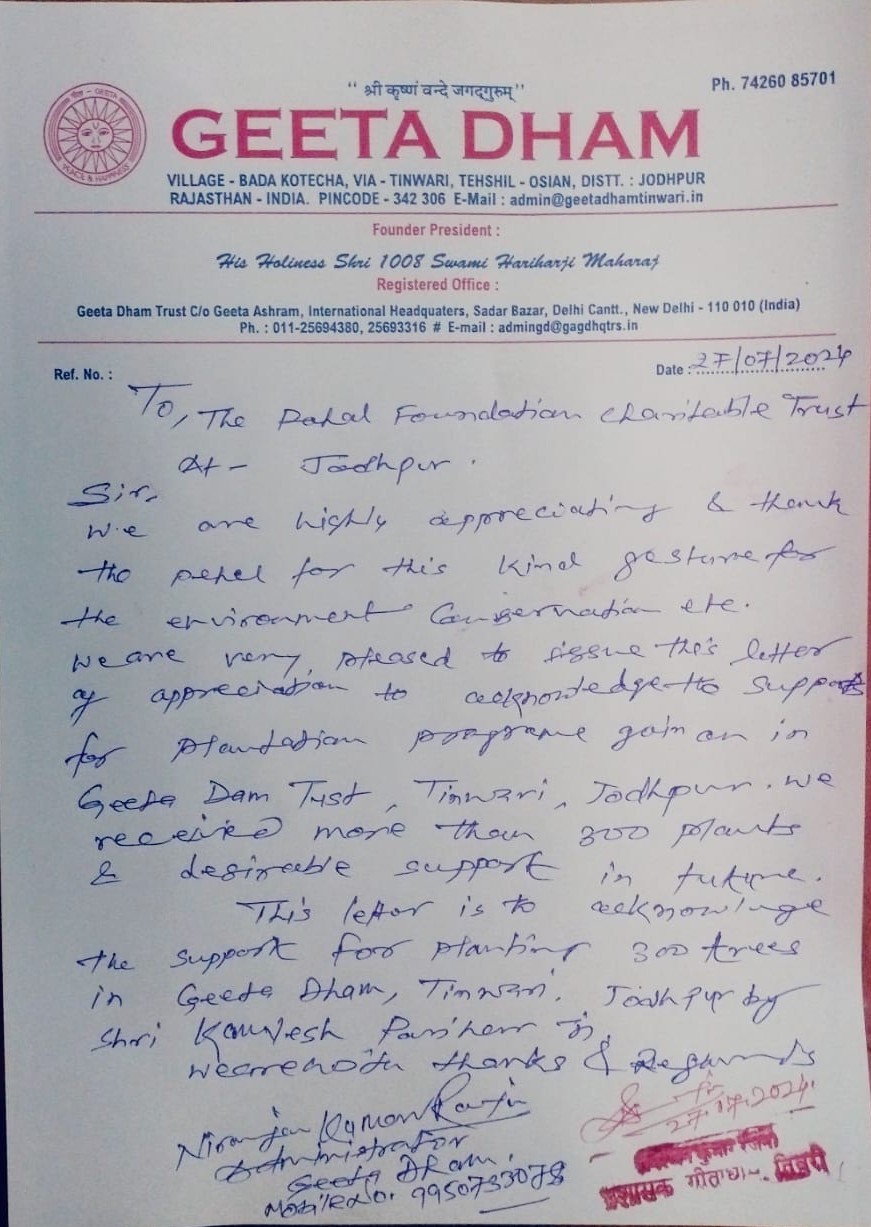 “ श्री कृष्णं वन्दे जगद्गुरुम् ”
Ph. 74260 85701
GEETA DHAM
VILLAGE - BADA KOTECHA, VIA - TINWARI, TEHSHIL - OSIAN, DISTT. : JODHPUR
RAJASTHAN - INDIA. PINCODE - 342 306 E-Mail : admin@geetadhamtinwari.in
Founder President :
His Holiness Shri 1008 Swami Hariharji Maharaj
Registered Office :
Geeta Dham Trust C/o Geeta Ashram, International Headquaters, Sadar Bazar, Delhi Cantt., New Delhi - 110 010 (India)
Ph. : 011-25694380, 25693316 # E-mail : admingd@gagdhqtrs.in
Ref. No. :
Date : 27/07/2024
To, The Pahal Foundation Charitable Trust
At - Jodhpur.
Sir,
We are highly appreciating & thank
the pehel for this kind gesture for
the environment Conservation etc.
We are very pleased to issue this letter
of appreciation to acknowledge the support
for plantation programe goin on in
Geeta Dam Tust, Tinwari, Jodhpur. We
received more than 300 plants
& desireable support in future.
This letter is to acknowlnge
the support for planting 300 trees
in Geeta Dham, Tinwari, Jodhpur by
Shri Kamlesh Parihar ji.
thanks & Regards
Niranjan Kumar
Administrator
Geeta Dham.
Mobile No. 9950733078
27.17.2024
कुमार
प्रशासक गीताधाम, तिंवरी